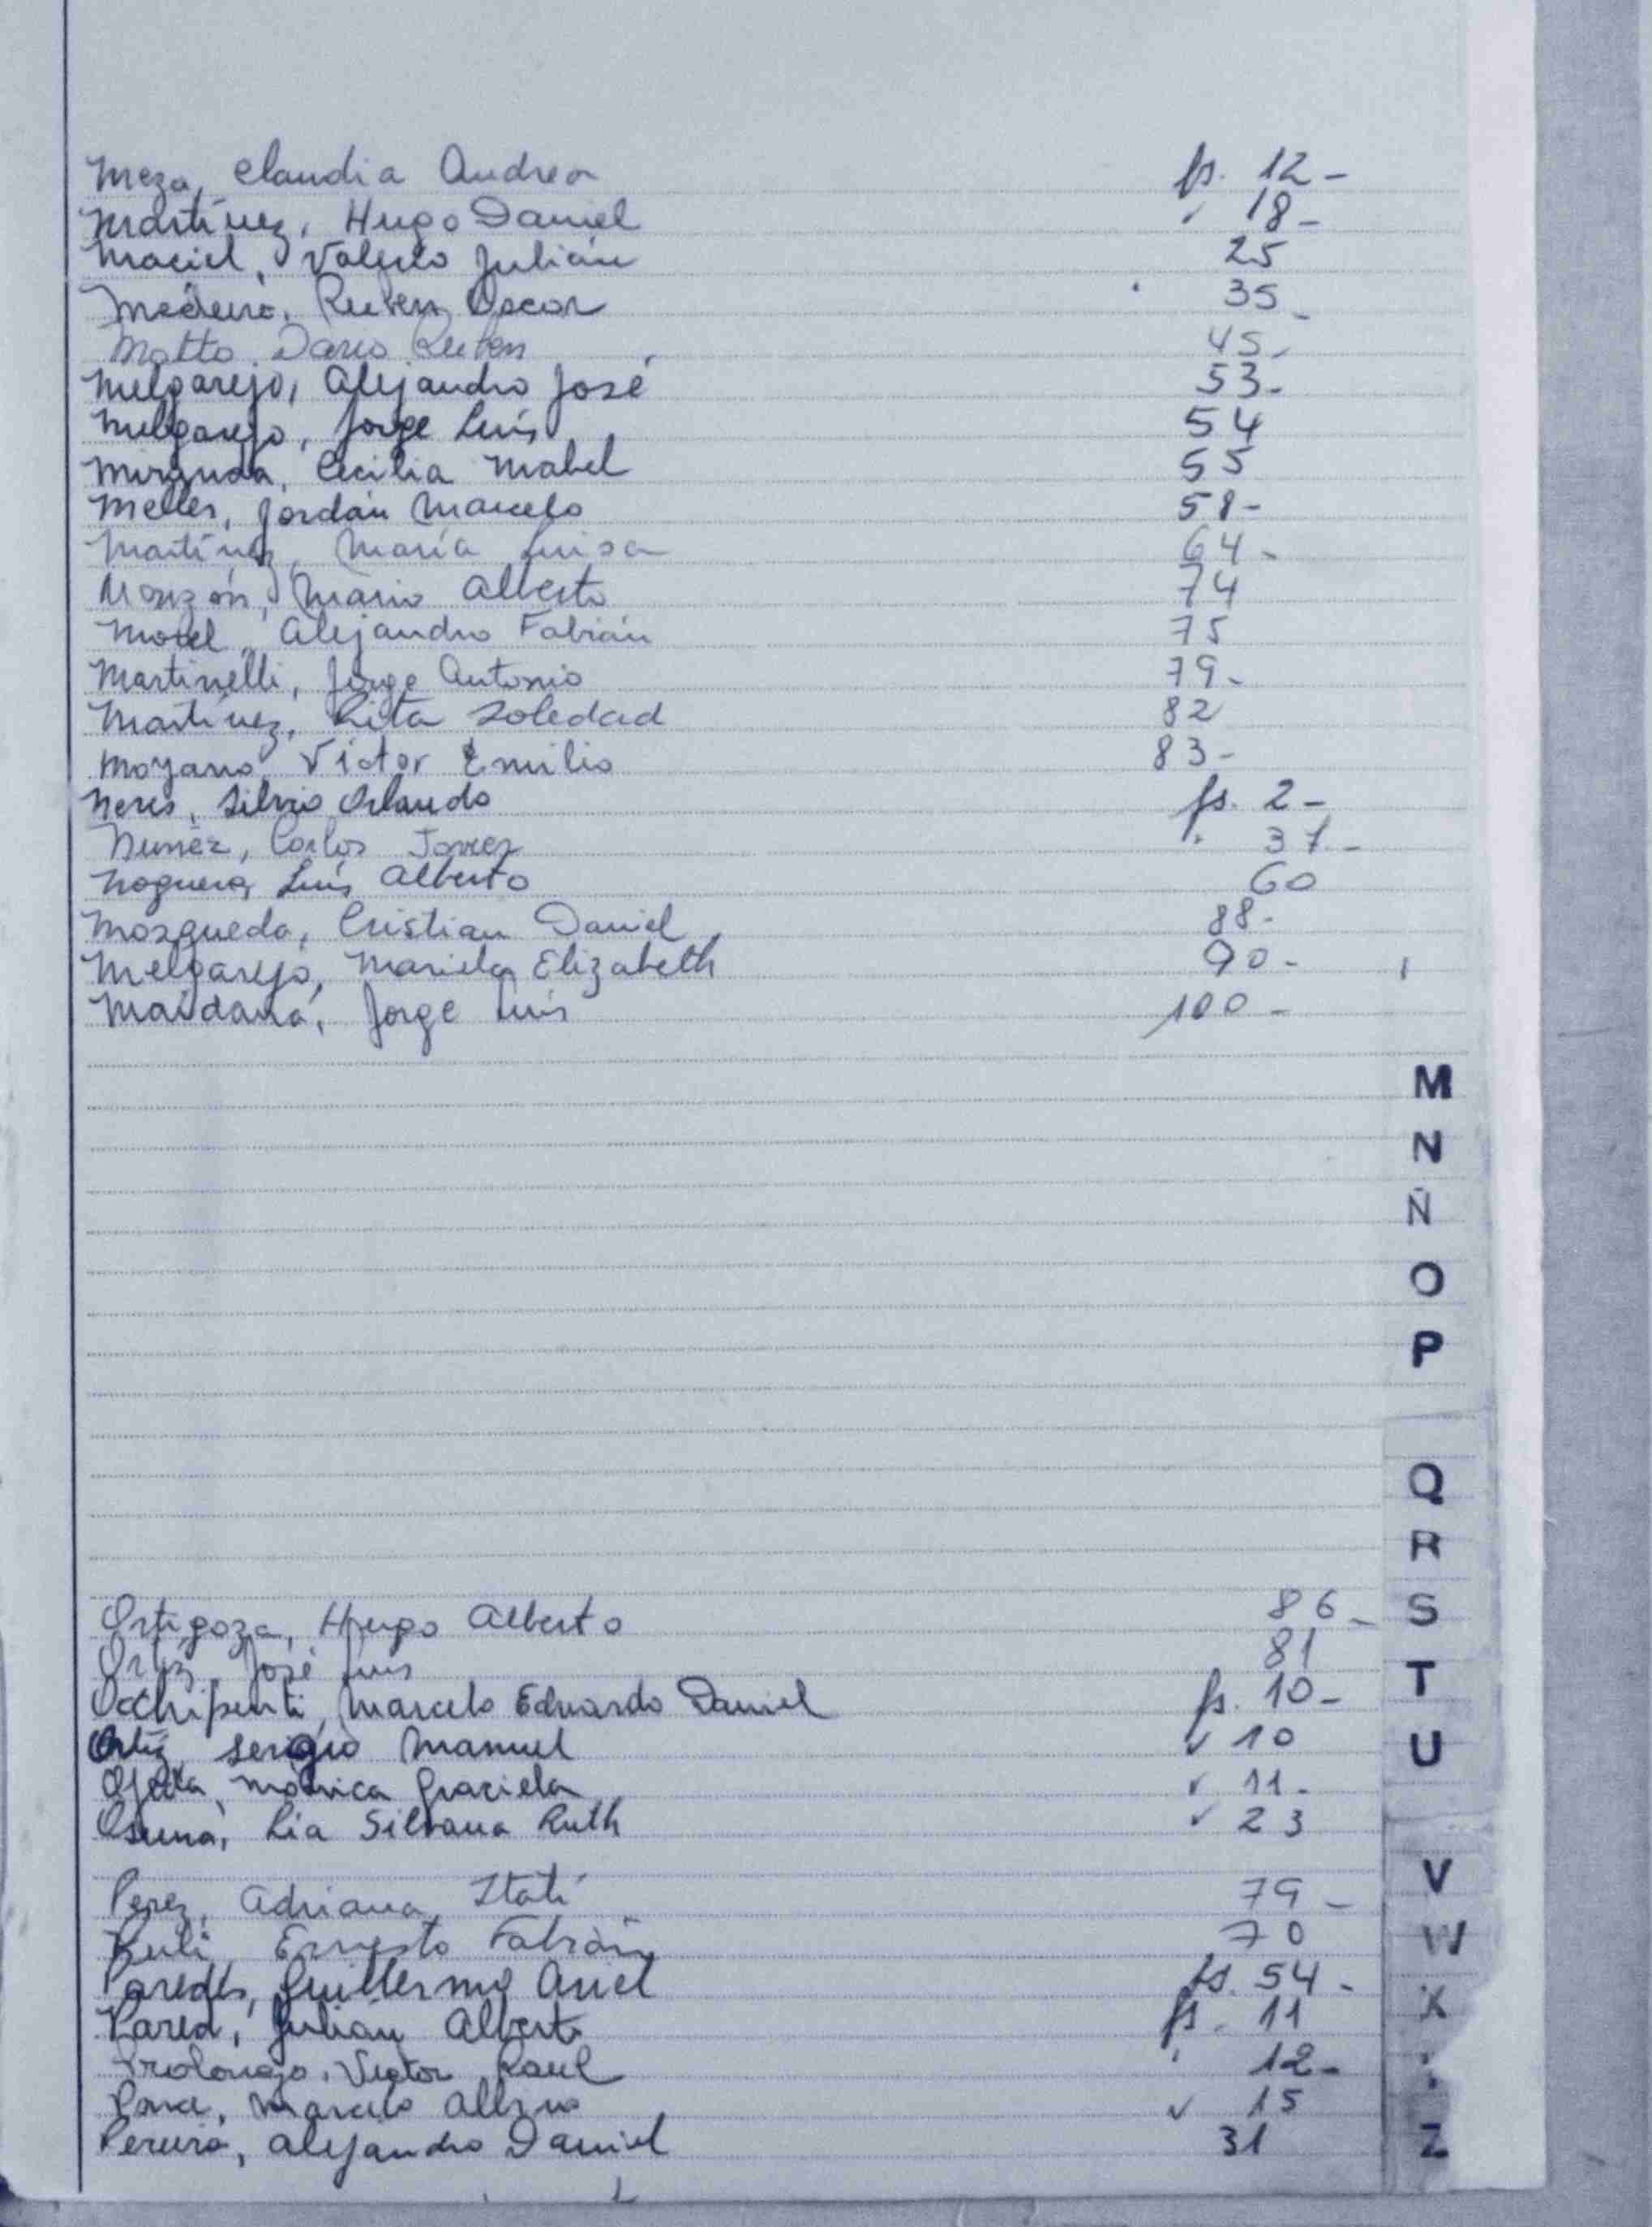 Meza, Claudia Andrea fs. 12-
Martínez, Hugo Daniel ✓ 18-
Maciel, Valerio Julián 25
Medeiro, Ruben Oscar 35-
Motto, Dario Ruben 45-
Melgarejo, Alejandro José 53-
Melgarejo, Jorge Luis 54
Miranda, Cecilia Mabel 55
Meller, Jordán Marcelo 58-
Martínez, María Luisa 64-
Monzón, Mario Alberto 74
Motel, Alejandro Fabián 75
Martinelli, Jorge Antonio 79-
Martínez, Rita Soledad 82
Moyano, Victor Emilio 83-
Neris, Silvio Orlando fs. 2-
Nuñez, Carlos Javier 37-
Noguera, Luis Alberto 60
Mosqueda, Cristian Daniel 88-
Melgarejo, Mariela Elizabeth 90-
Maidana, Jorge Luis 100-
M
N
Ñ
O
P
Q
R
S
T
U
V
W
X
Z
Ortigoza, Hugo Alberto 86-
Ortiz, José Luis 81
Occhipenti, Marcelo Eduardo Daniel fs. 10-
Ortiz, Sergio Manuel ✓ 10
Ojeda, Mónica Graciela ✓ 11-
Osuna, Lia Silvana Ruth ✓ 23
Perez, Adriana Itatí 79-
Ernesto Fabián 70
Paredes, Guillermo Ariel fs. 54-
Julián Alberto fs. 11
Prolongo, Victor Raul 12-
Marcelo Albino ✓ 15
Pereira, Alejandro Daniel 31